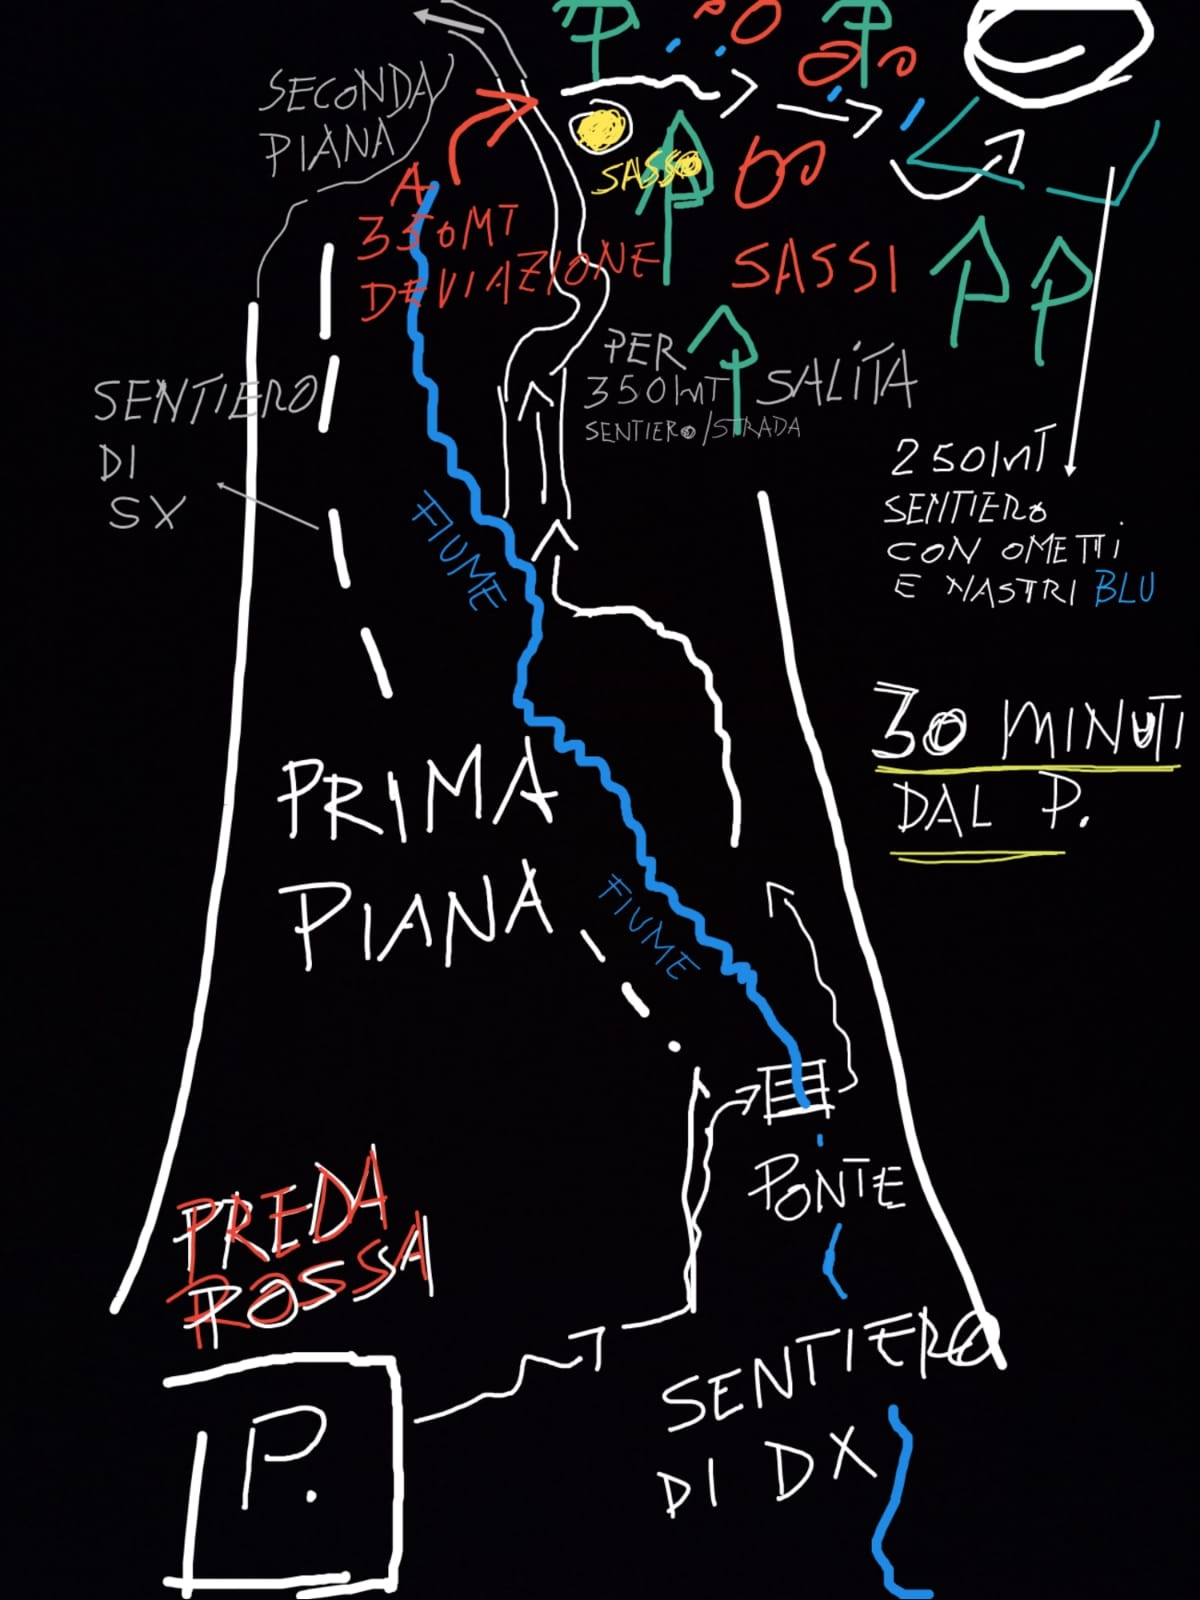 SECONDA
PIANA
SASSO
A
350MT
DEVIAZIONE
SASSI
PER
350MT SALITA
SENTIERO/STRADA
SENTIERO
DI
SX
250MT
SENTIERO
CON OMETTI
E NASTRI BLU
FIUME
30 MINUTI
DAL P.
PRIMA
PIANA
FIUME
PONTE
PREDA
ROSSA
SENTIERO
DI DX
P.